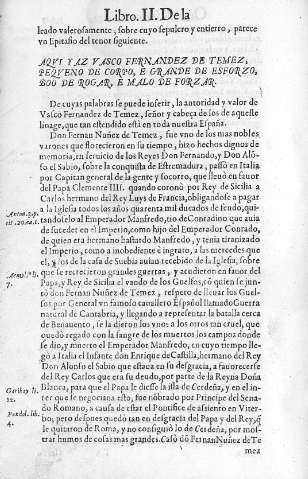 Libro. II. De la
leado valerosamente, sobre cuyo sepulcro y entierro, parece
vn Epitafio del tenor siguiente.
AQVI YAZ VASCO FERNANDEZ DE TEMEZ,
PEQVENO DE CORPO, E GRANDE DE ESFORZO,
BOO DE ROGAR, E MALO DE FORZAR.
De cuyas palabras se puede inferir, la autoridad y valor de
Vasco Fernandez de Temez, señor y cabeça de los de aqueste
linage, que tan estendido está en toda nuestra España.
Don Fernan Nuñez de Temez, fue vno de los mas nobles
varones que florecieron en su tiempo, hizo hechos dignos de
memoria, en seruicio de los Reyes Don Fernando, y Don Alõ-
so el Sabio, sobre la conquista de Estremadura, passò en Italia
por Capitan general de la gente y socorro, que lleuò en fauor
del Papa Clemente IIII. quando coronò por Rey de Sicilia a
Carlos hermano del Rey Luys de Francia, obligandose a pagar
a la Iglesia todos los años quarenta mil ducados de feudo, qui-
tandoselo al Emperador Manfredo, tio de Conradino que auia
de suceder en el Imperio, como hijo del Emperador Conrado,
de quien era hermano bastardo Manfredo, y tenia tiranizado
el Imperio, como a inobediente è ingrato, a las mercedes que
el, y los de la casa de Sueuia auian recebido de la Iglesia, sobre
que se recrecieron grandes guerras, y acudieron en fauor del
Papa, y Rey de Sicilia el vando de los Guelfos, cõ quien se jun-
tò don Fernan Nuñez de Temez, respeto de lleuar los Guel-
fos por General vn famoso cauallero Español llamado Guerra
natural de Cantabria, y llegando a representar la batalla cerca
de Benauento, se la dieron los vnos a los otros tan cruel, que
quedò regado con la sangre de los muertos los campos donde
se dio, y muerto el Emperador Manfredo, en cuyo tiempo lle-
gò a Italia el Infante don Enrique de Castilla, hermano del Rey
Don Alonso el Sabio que estaua en su desgracia, a fauorecerse
del Rey Carlos que era su deudo, por parte de la Reyna Doña
Blanca, para que el Papa le diesse la isla de Cerdeña, y en el in-
ter que se negociaua esto, fue nõbrado por Principe del Sena-
do Romano, a causa de estar el Pontifice de assiento en Viter-
bo, pero despues quedò tan en desgracia del Papa y del Rey, q̃
le quitaron de Roma, y no consiguiò lo de Cerdeña, por mos-
trar humos de cosas mas grandes. Casò dõ Fernan Nuñez de Te
mez
7.
Garibay li.
22.
4.